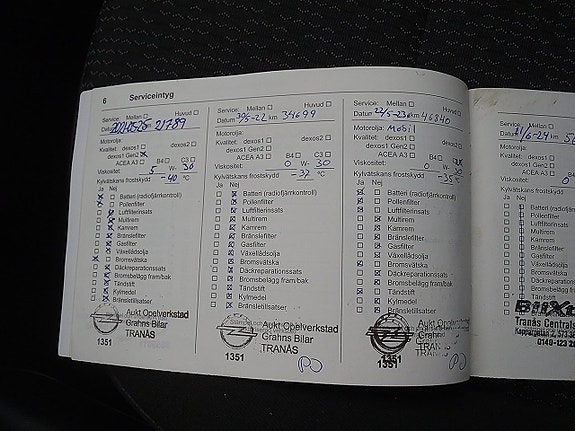 6 Serviceintyg
Service: Mellan Huvud
Datum 20210525 km 21789
Motorolja:
Kvalitet: dexos1 dexos2
dexos1 Gen2
ACEA A3 B4 C3
Viskositet: 5 W- 30
Kylvätskans frostskydd
-40 °C
Ja Nej
Batteri (radiofjärrkontroll)
Pollenfilter
Luftfilterinsats
Multirem
Kamrem
Bränslefilter
Gasfilter
Växellådsolja
Bromsvätska
Däckreparationssats
Bromsbelägg fram/bak
Tändstift
Kylmedel
Bränsletillsatser
Aukt Opelverkstad
Grahns Bilar
TRANÅS
1351
Service: Mellan Huvud
Datum 30/5-22 km 34699
Motorolja:
Kvalitet: dexos1 dexos2
dexos1 Gen2
ACEA A3 B4 C3
Viskositet: 0 W- 30
Kylvätskans frostskydd
-37 °C
Ja Nej
Batteri (radiofjärrkontroll)
Pollenfilter
Luftfilterinsats
Multirem
Kamrem
Bränslefilter
Gasfilter
Växellådsolja
Bromsvätska
Däckreparationssats
Bromsbelägg fram/bak
Tändstift
Kylmedel
Bränsletillsatser
Aukt Opelverkstad
Grahns Bilar
TRANÅS
1351
Service: Mellan Huvud
Datum 22/5-23 km 46840
Motorolja: Mobil
Kvalitet: dexos1 dexos2
dexos1 Gen2
ACEA A3 B4
Viskositet: 0 W- 30
Kylvätskans frostskydd
-35 °C
Ja Nej
Batteri (radiofjärrkontroll)
Pollenfilter
Luftfilterinsats
Multirem
Kamrem
Bränslefilter
Gasfilter
Växellådsolja
Bromsvätska
Däckreparationssats
Bromsbelägg fram/bak
Tändstift
Kylmedel
Bränsletillsatser
Aukt Opelverkstad
1351
Service: Mellan
Datum km
Motorolja:
Kvalitet: dexos1
dexos1 Gen2
ACEA A3
Viskositet: 0
Kylvätskans frostskydd
Ja Nej
Batteri (radiofj
Pollenfilter
Luftfilterins
Multirem
Kamrem
Bränslefilte
Gasfilter
Växellådso
Bromsväts
Däckrepar
Bromsbel
Tändstift
Kylmedel
Tranås Centrals
0140-123 20